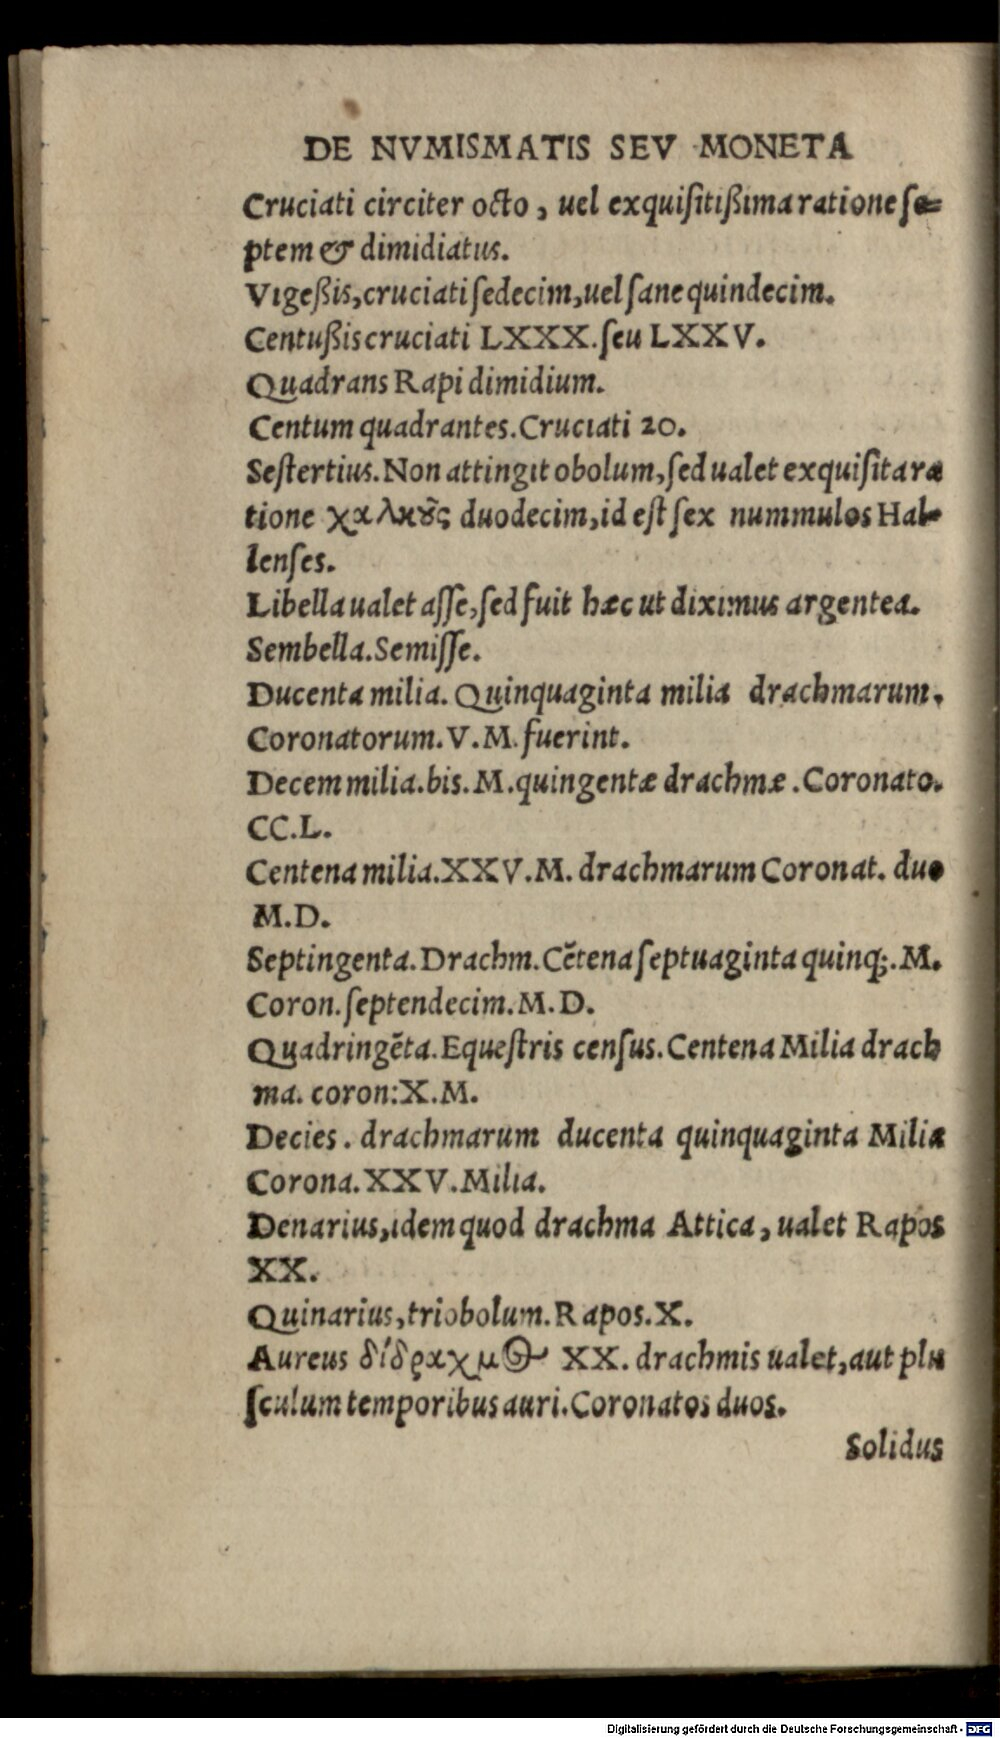 DE NVMISMATIS SEV MONETA
Cruciati circiter octo, uel exquisitißima ratione se=
ptem & dimidiatus.
Vigeßis, cruciati sedecim, uel sane quindecim.
Centußis cruciati LXXX. seu LXXV.
Quadrans Rapi dimidium.
Centum quadrantes. Cruciati 20.
Sestertius. Non attingit obolum, sed ualet exquisita ra
tione χαλκȣ̃ς duodecim, id est sex nummulos Hal-
lenses.
Libella ualet asse, sed fuit hæc ut diximus argentea.
Sembella. Semisse.
Ducenta milia. Quinquaginta milia drachmarum.
Coronatorum. V. M. fuerint.
Decem milia. bis. M. quingentæ drachmæ. Coronato.
CC. L.
Centena milia. XXV. M. drachmarum Coronat. duo
M. D.
Septingenta. Drachm. Cẽtena septuaginta quinq;. M.
Coron. septendecim. M. D.
Quadringẽta. Equestris census. Centena Milia drach
ma. coron: X. M.
Decies. drachmarum ducenta quinquaginta Milia
Corona. XXV. Milia.
Denarius, idem quod drachma Attica, ualet Rapos
XX.
Quinarius, triobolum. Rapos. X.
Aureus δίδραχμος XX. drachmis ualet, aut plu
sculum temporibus auri. Coronatos duos.
Solidus
Digitalisierung gefördert durch die Deutsche Forschungsgemeinschaft - DFG